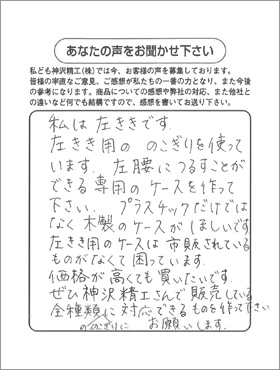 あなたの声をお聞かせ下さい
私ども神沢精工(株)では今、お客様の声を募集しております。
皆様の率直なご意見、ご感想が私たちの一番の力となり、また今後
の参考になります。商品についての感想や弊社の対応、また他社と
の違いなど何でも結構ですので、感想を書いてお送り下さい。
私は左ききです。
左きき用の のこぎりを使って
います。左腰につるすことが
できる専用のケースを作って
下さい。プラスチックだけでは
なく木製のケースがほしいです
左きき用のケースは市販されている
ものがなくて困っています。
価格が高くても買いたいです。
ぜひ神沢精工さんで販売している
全種類に対応できるものを作って下さい
ののこぎりに お願いします。